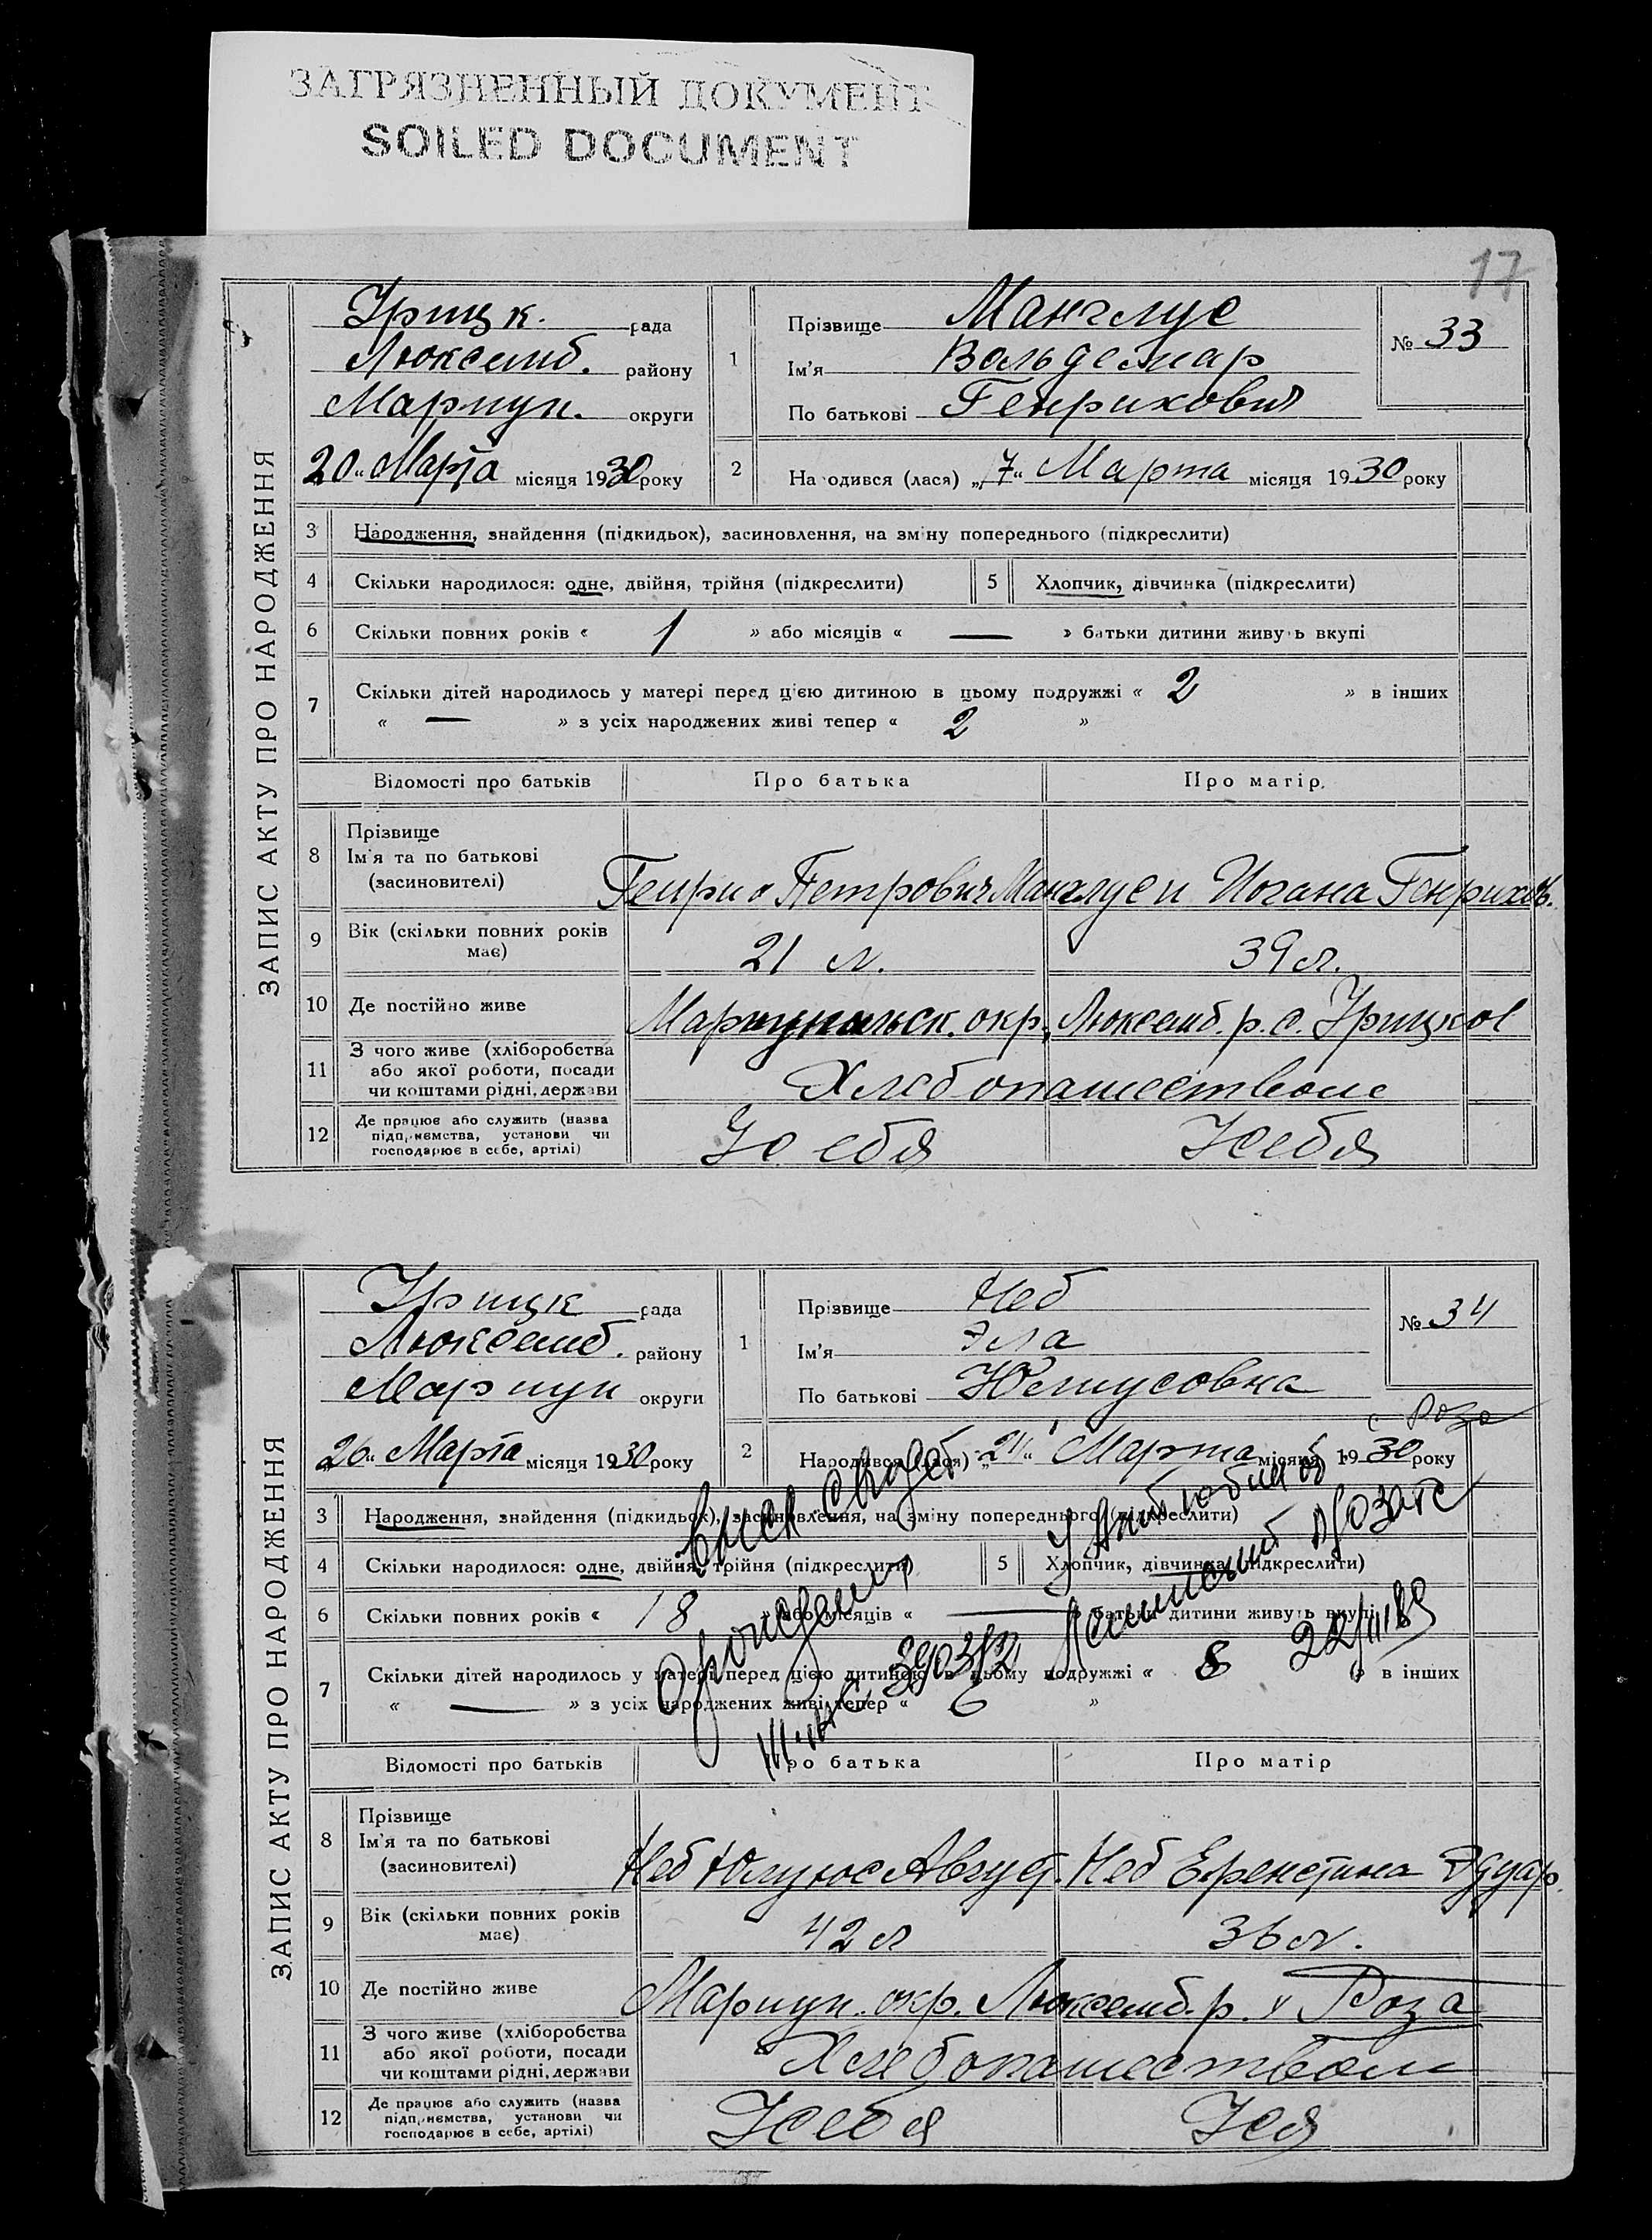 ЗАГРЯЗНЕННЫЙ ДОКУМЕНТ
SOILED DOCUMENT
17
ЗАПИС АКТУ ПРО НАРОДЖЕННЯ
Урицк. рада
Люксемб. району
Мариуп. округи
20 „ Марта місяця 1930 року
1
Прізвище Манглус
Ім'я Вольдемар
По батькові Генрихович
№ 33
2 На одився (лася) „7“ Марта місяця 1930 року
3 Народження, знайдення (підкидьок), засиновлення, на зміну попереднього (підкреслити)
4 Скільки народилося: одне, двійня, трійня (підкреслити) 5 Хлопчик, дівчинка (підкреслити)
6 Скільки повних років « 1 » або місяців « — » батьки дитини живуть вкупі
7 Скільки дітей народилось у матері перед цією дитиною в цьому подружжі « 2 » в інших
« — » з усіх народжених живі тепер « 2 »
Відомості про батьків Про батька Про матір
8 Прізвище
Ім'я та по батькові
(засиновителі)
Генрих Петрович Манглус и Иогана Генрихов.
9 Вік (скільки повних років має) 21 л. 39 л.
10 Де постійно живе Мариупольск. окр., Люксемб. р. с. Урицкое
11 З чого живе (хліборобства
або якої роботи, посади
чи коштами рідні, держави
Хлебопашеством
12 Де працює або служить (назва
підприємства, установи чи
господарює в себе, артілі)
У себя У себя
ЗАПИС АКТУ ПРО НАРОДЖЕННЯ
Урицк рада
Люксемб. району
Мариуп округи
26 „ Марта місяця 1930 року
1
Прізвище Неб
Ім'я Эла
По батькові
№ 34
Роза
2 Народився (лася) „24“ Марта місяця 1930 року
3 Народження, знайдення (підкидьок), засиновлення, на зміну попереднього (підкреслити)
4 Скільки народилося: одне, двійня, трійня (підкреслити) 5 Хлопчик, дівчинка (підкреслити)
6 Скільки повних років « 18 » або місяців « — » батьки дитини живуть вкупі
7 Скільки дітей народилось у матері перед цією дитиною в цьому подружжі « 8 » в інших
« — » з усіх народжених живі тепер « 6 »
Відомості про батьків Про батька Про матір
8 Прізвище
Ім'я та по батькові
(засиновителі)
Неб Август. Неб Эдуар.
9 Вік (скільки повних років має) 42 л 36 л.
10 Де постійно живе Мариуп. окр. Люксемб. р. х Роза
11 З чого живе (хліборобства
або якої роботи, посади
чи коштами рідні, держави
Хлебопашеством
12 Де працює або служить (назва
підприємства, установи чи
господарює в себе, артілі)
У себя